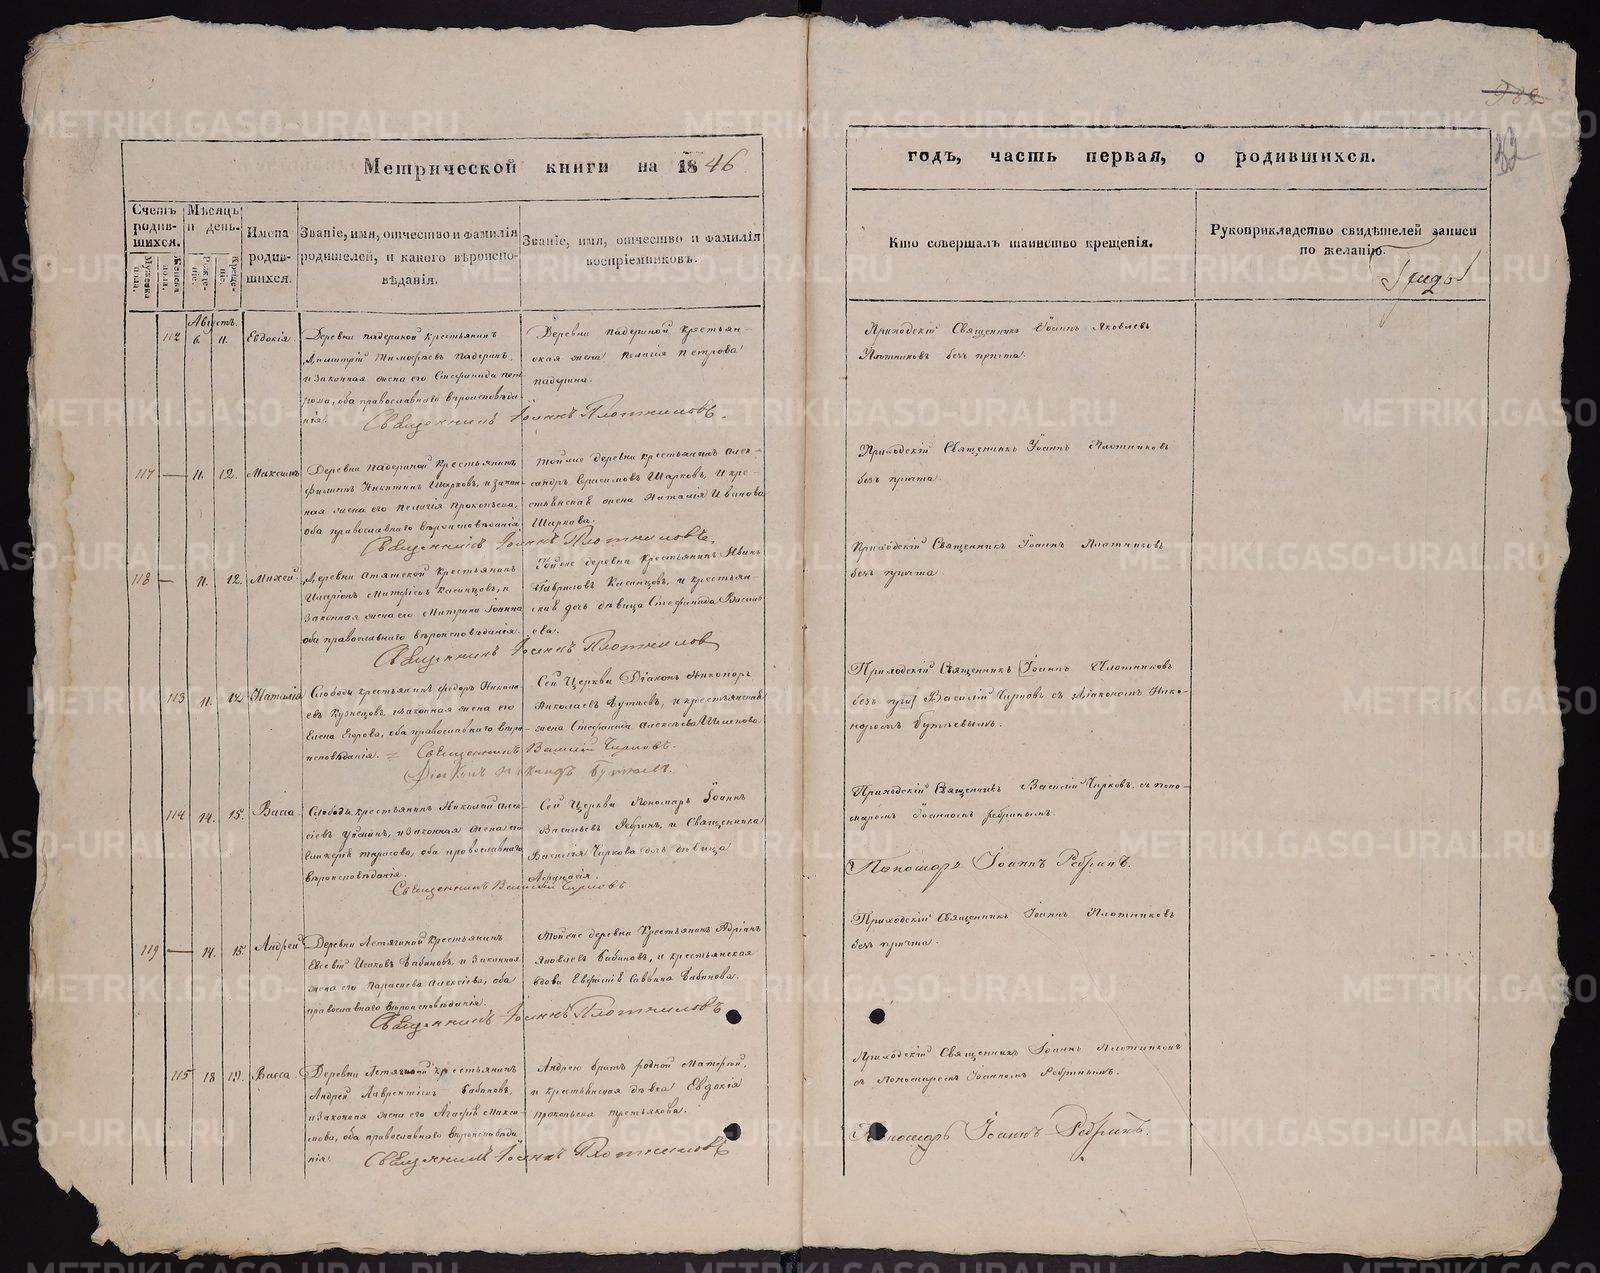 Метрической книги на 1846
годъ, часть первая, о родившихся.
Счетъ родив-шихся.
Мужеска пола.
Женска пола.
Мѣсяцъ и день.
Рожде-ніе.
Креще-ніе.
Имена родив-шихся.
Званіе, имя, отчество и фамилія
родителей, и какого вѣроиспо-
вѣданія.
Званіе, имя, отчество и фамилія
воспріемниковъ.
Кто совершалъ таинство крещенія.
Рукоприкладство свидѣтелей записи
по желанію.
32
Августъ.
112 6. 11. Евдокія
Деревни Падериной крестьянинъ
Димитрій Тимофеевъ Падеринъ,
и законная жена его Стефанида Пет-
рова, оба православнаго вѣроисповѣда-
нія.
Деревни Падериной крестьян-
ская жена Пелагія Петрова
Падерина.
Священникъ Іоаннъ Плотниковъ.
Приходскій Священникъ Іоаннъ Яковлевъ
Плотниковъ безъ причта.
117 — 11. 12. Максимъ
Деревни Падериной крестьянинъ
Филиппъ Никитинъ Шарковъ, и закон-
ная жена его Пелагія Прокопьева,
оба православнаго вѣроисповѣданія.
Той же деревни крестьянинъ Алек-
сандръ Герасимовъ Шарковъ, и кре-
стьянская жена Наталія Иванова
Шаркова.
Священникъ Іоаннъ Плотниковъ.
Приходскій Священникъ Іоаннъ Плотниковъ
безъ причта.
118 — 11. 12. Михей.
Деревни крестьянинъ
Иларіонъ и
законная жена его Матрона
оба православнаго вѣроисповѣданія.
Той же деревни крестьянинъ Иванъ
Гавриловъ и крестьян-
ская дочь дѣвица Стефанида Василь-
ева.
Священникъ Іоаннъ Плотниковъ
Приходскій Священникъ Іоаннъ Плотниковъ
безъ причта
113 11. 12. Наталія
Слободы крестьянинъ Федоръ Никола-
евъ Кузнецовъ, и законная жена его
Елена Егорова, оба православнаго вѣро-
исповѣданія. =
Сей Церкви Діаконъ Никаноръ
Николаевъ и крестьянская
жена Стефанида Алексѣева
Священникъ Василій Чирковъ.
Приходскій Священникъ Іоаннъ Плотниковъ
безъ при Василій Чирковъ съ діакономъ Ника-
норомъ
114 14. 15. Васса.
Слободы крестьянинъ Николай Алек-
сѣевъ и законная жена его
Гликерія Тарасова, оба православнаго
вѣроисповѣданія.
Сей Церкви Пономарь Іоаннъ
Васильевъ Ребринъ, и Священника
Василія Чиркова дочь дѣвица
Афанасія.
Священникъ Василій Чирковъ.
Приходскій Священникъ Василій Чирковъ съ поно-
маремъ Іоанномъ Ребринымъ.
Пономарь Іоаннъ Ребринъ.
119 — 14. 15. Андрей
Деревни Летягиной крестьянинъ
Евсевій Исаковъ Бабиновъ, и законная
жена его Параскева Алексѣева, оба
православнаго вѣроисповѣданія.
Той же деревни крестьянинъ Адріанъ
Яковлевъ Бабиновъ, и крестьянская
вдова Евфимія Саввина Бабинова.
Священникъ Іоаннъ Плотниковъ
Приходскій Священникъ Іоаннъ Плотниковъ
безъ причта.
115 18 19. Васса.
Деревни Летягиной крестьянинъ
Андрей Лаврентьевъ Бабиновъ,
и законная жена его Агафія Макси-
мова, оба православнаго вѣроисповѣда-
нія.
Андрею братъ родной Матфей,
и крестьянская дѣвка Евдокія
Прокопьева Третьякова.
Священникъ Іоаннъ Плотниковъ
Приходскій Священникъ Іоаннъ Плотниковъ
съ Пономаремъ Іоанномъ Ребринымъ.
Пономарь Іоаннъ Ребринъ.
METRIKI.GASO-URAL.RU